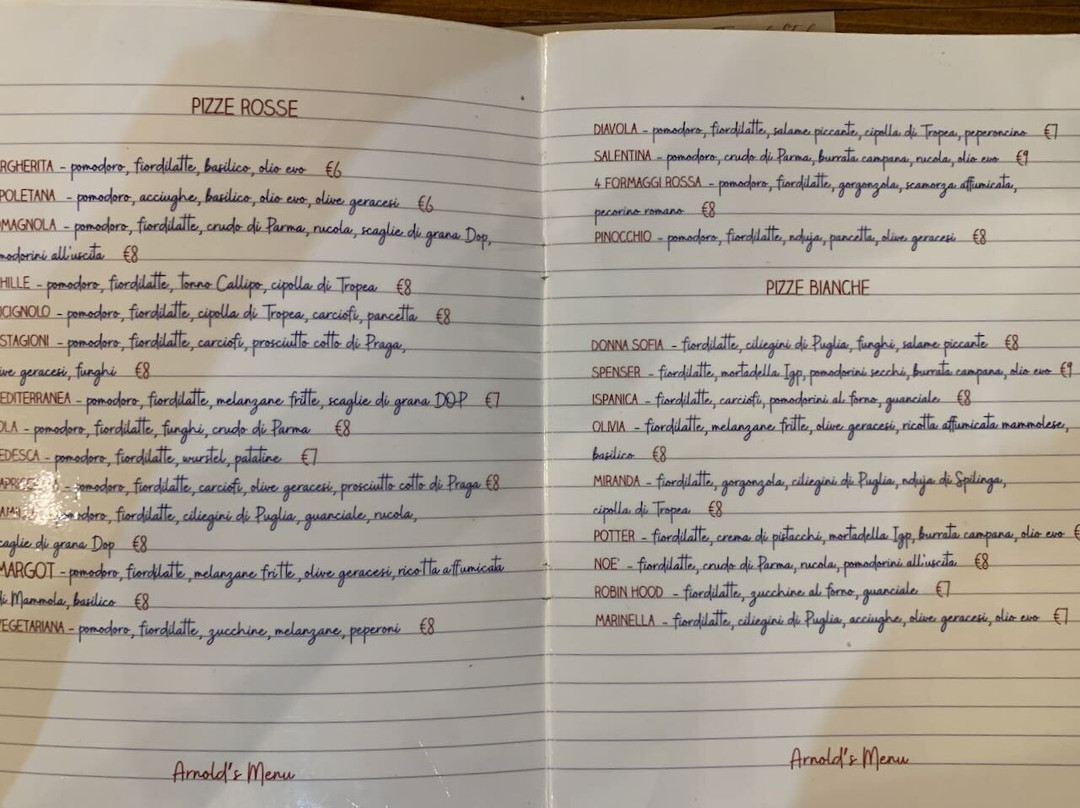 PIZZE ROSSE
RGHERITA - pomodoro, fiordilatte, basilico, olio evo €6
POLETANA - pomodoro, acciughe, basilico, olio evo, olive geracesi €6
MAGNOLA - pomodoro, fiordilatte, crudo di Parma, rucola, scaglie di grana Dop,
modorini all'uscita €8
HILLE - pomodoro, fiordilatte, Tonno Callipo, cipolla di Tropea €8
CIGNOLO - pomodoro, fiordilatte, cipolla di Tropea, carciofi, pancetta €8
STAGIONI - pomodoro, fiordilatte, carciofi, prosciutto cotto di Praga,
ive geracesi, funghi €8
EDITERRANEA - pomodoro, fiordilatte, melanzane fritte, scaglie di grana DOP €7
OLA - pomodoro, fiordilatte, funghi, crudo di Parma €8
EDESCA - pomodoro, fiordilatte, wurstel, patatine €7
pomodoro, fiordilatte, carciofi, olive geracesi, prosciutto cotto di Praga €8
fiordilatte, ciliegini di Puglia, guanciale, rucola,
caglie di grana Dop €8
MARGOT - pomodoro, fiordilatte, melanzane fritte, olive geracesi, ricotta affumicata
di Mammola, basilico €8
VEGETARIANA - pomodoro, fiordilatte, zucchine, melanzane, peperoni €8
Arnold's Menu
DIAVOLA - pomodoro, fiordilatte, salame piccante, cipolla di Tropea, peperoncino €7
SALENTINA - pomodoro, crudo di Parma, burrata campana, rucola, olio evo €9
4 FORMAGGI ROSSA - pomodoro, fiordilatte, gorgonzola, scamorza affumicata,
pecorino romano €8
PINOCCHIO - pomodoro, fiordilatte, nduja, pancetta, olive geracesi €8
PIZZE BIANCHE
DONNA SOFIA - fiordilatte, ciliegini di Puglia, funghi, salame piccante €8
SPENSER - fiordilatte, mortadella Igp, pomodorini secchi, burrata campana, olio evo €9
ISPANICA - fiordilatte, carciofi, pomodorini al forno, guanciale €8
OLIVIA - fiordilatte, melanzane fritte, olive geracesi, ricotta affumicata mammolese,
basilico €8
MIRANDA - fiordilatte, gorgonzola, ciliegini di Puglia, nduja di Spilinga,
cipolla di Tropea €8
POTTER - fiordilatte, crema di pistacchi, mortadella Igp, burrata campana, olio evo €
NOE' - fiordilatte, crudo di Parma, rucola, pomodorini all'uscita €8
ROBIN HOOD - fiordilatte, zucchine al forno, guanciale €7
MARINELLA - fiordilatte, ciliegini di Puglia, acciughe, olive geracesi, olio evo €7
Arnold's Menu